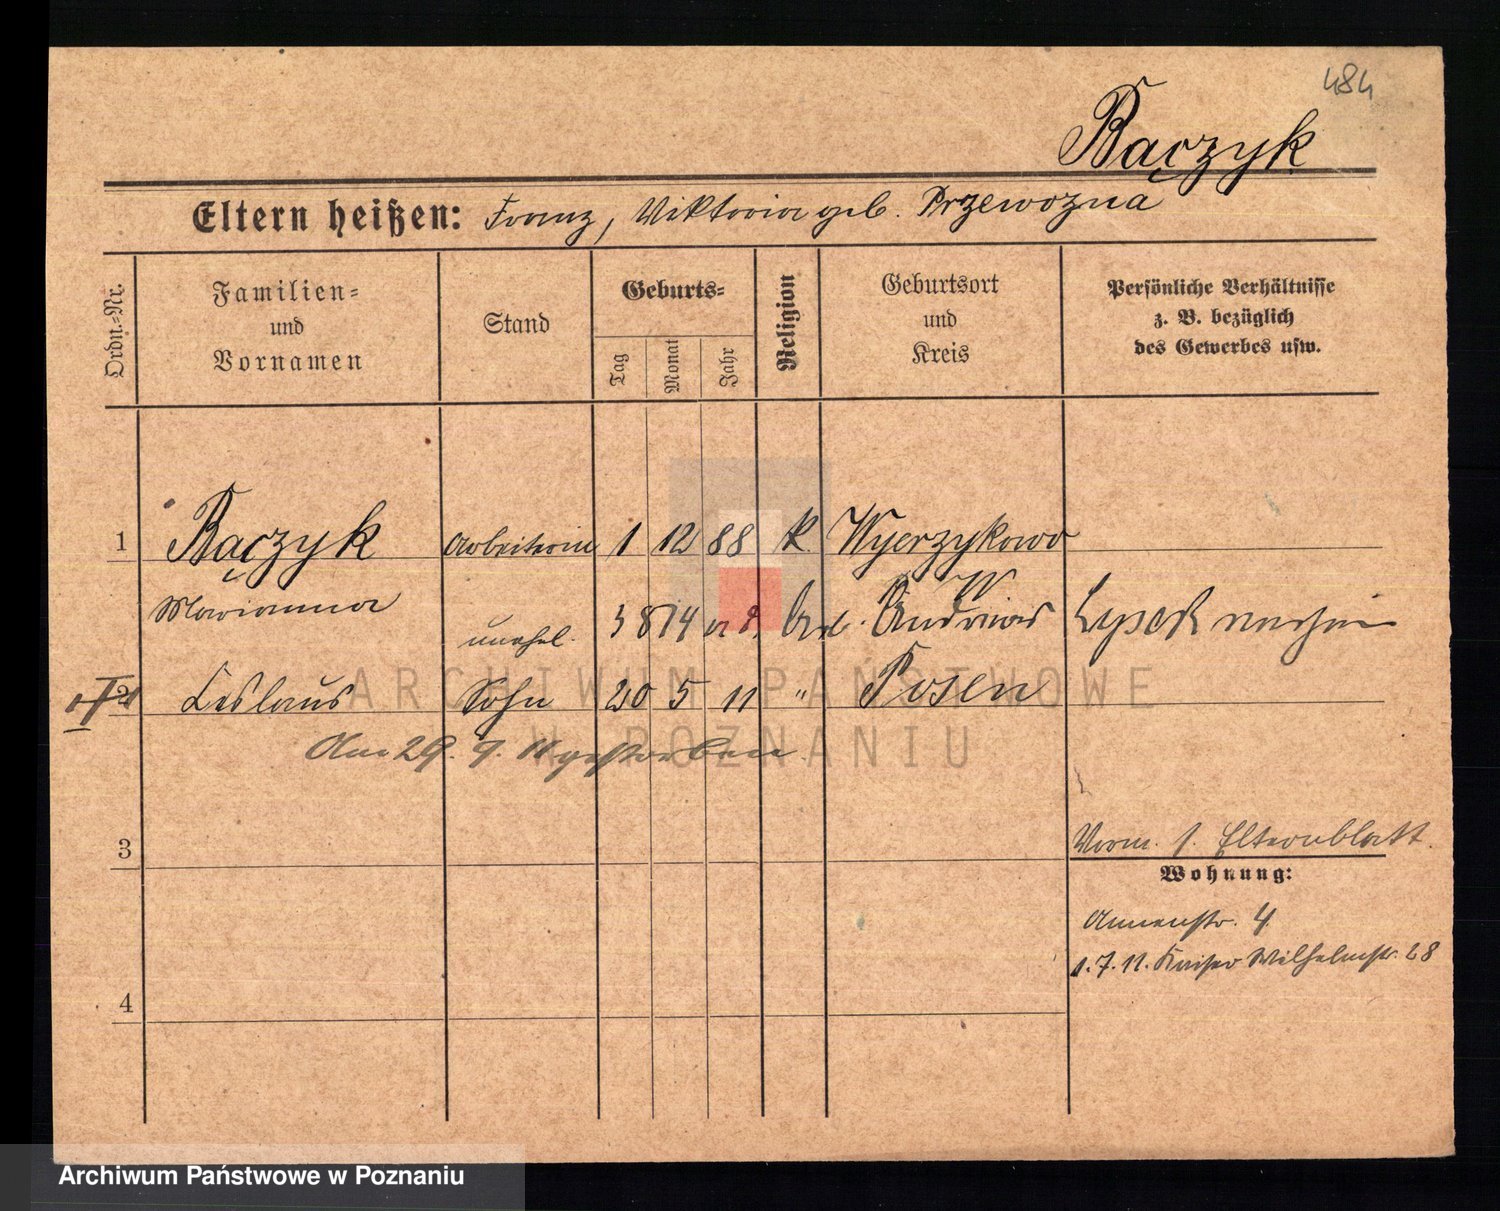 484
Bączyk
Eltern heißen: Franz, Viktoria geb. Przewozna
Ordn.-Nr.
Familien-
und
Vornamen
Stand
Geburts-
Tag
Monat
Jahr
Religion
Geburtsort
und
Kreis
Persönliche Verhältnisse
z. B. bezüglich
des Gewerbes usw.
1 Bączyk Arbeiterin 1 12 88 k. Wyerzykowo
Marianna
unehel. Arb. Andreas
2 Leslaus Sohn 20 5 11 " Posen
Am 29. 9. 11 gestorben.
3
Vorm. s. Elternblatt.
Wohnung:
Annenstr. 4
1.7.11. Kaiser Wilhelmstr. 28
4
ARCHIWUM PAŃSTWOWE
W POZNANIU
Archiwum Państwowe w Poznaniu